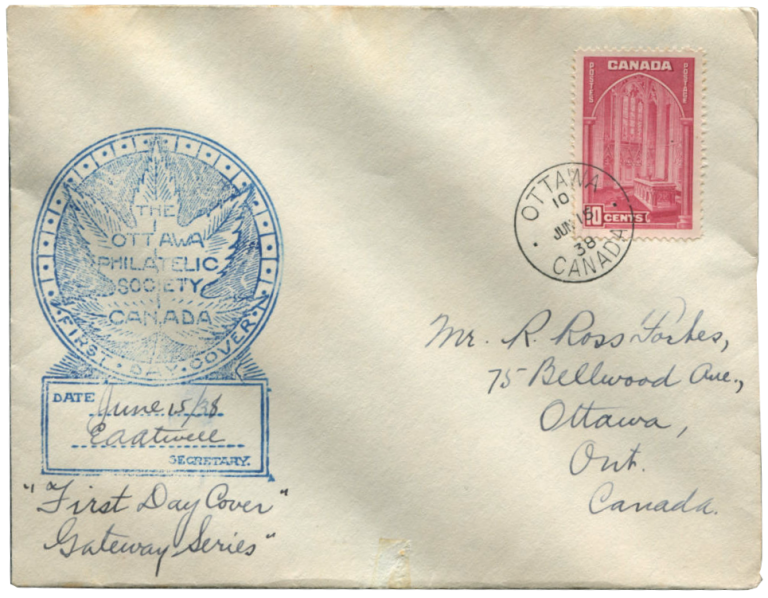 CANADA
POSTES
POSTAGE
10 CENTS
OTTAWA
10
JUN 15
38
CANADA
THE
OTTAWA
PHILATELIC
SOCIETY
CANADA
FIRST · DAY · COVER
DATE June 15/38
SECRETARY.
"First Day Cover"
Gateway Series"
Mr. R. Ross Forbes,
75 Bellwood Ave.,
Ottawa,
Ont.
Canada.